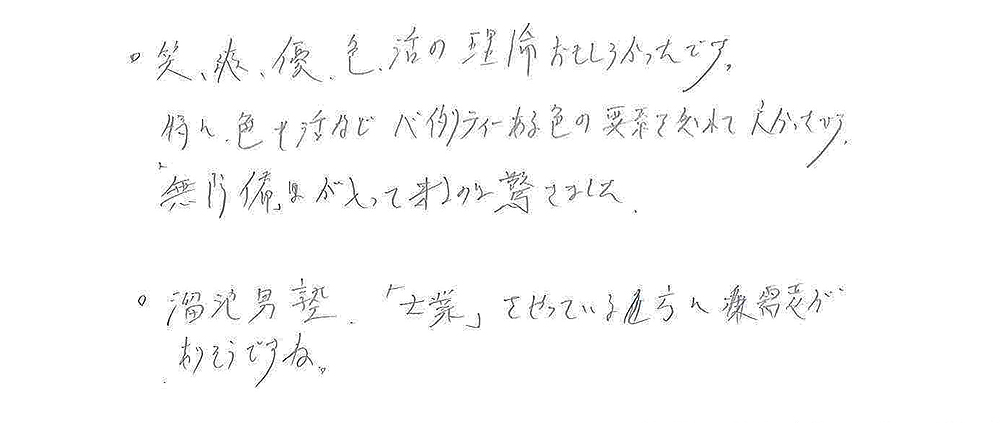 ○笑、爽、優、色、活の理論おもしろかったです。
特に、色や活など バイタリティーある色の要素を知れてよかったです。
「無防備」はがもって来るのは驚きました。
○溜池男塾、「士業」をやっている処方に需要が
ありそうですね。